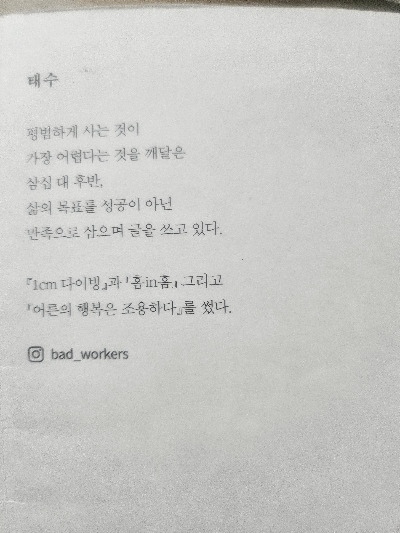 태수
평범하게 사는 것이
가장 어렵다는 것을 깨달은
삼십 대 후반,
삶의 목표를 성공이 아닌
만족으로 삼으며 글을 쓰고 있다.
『1cm 다이빙』과 『홈in홈』, 그리고
『어른의 행복은 조용하다』를 썼다.
bad_workers